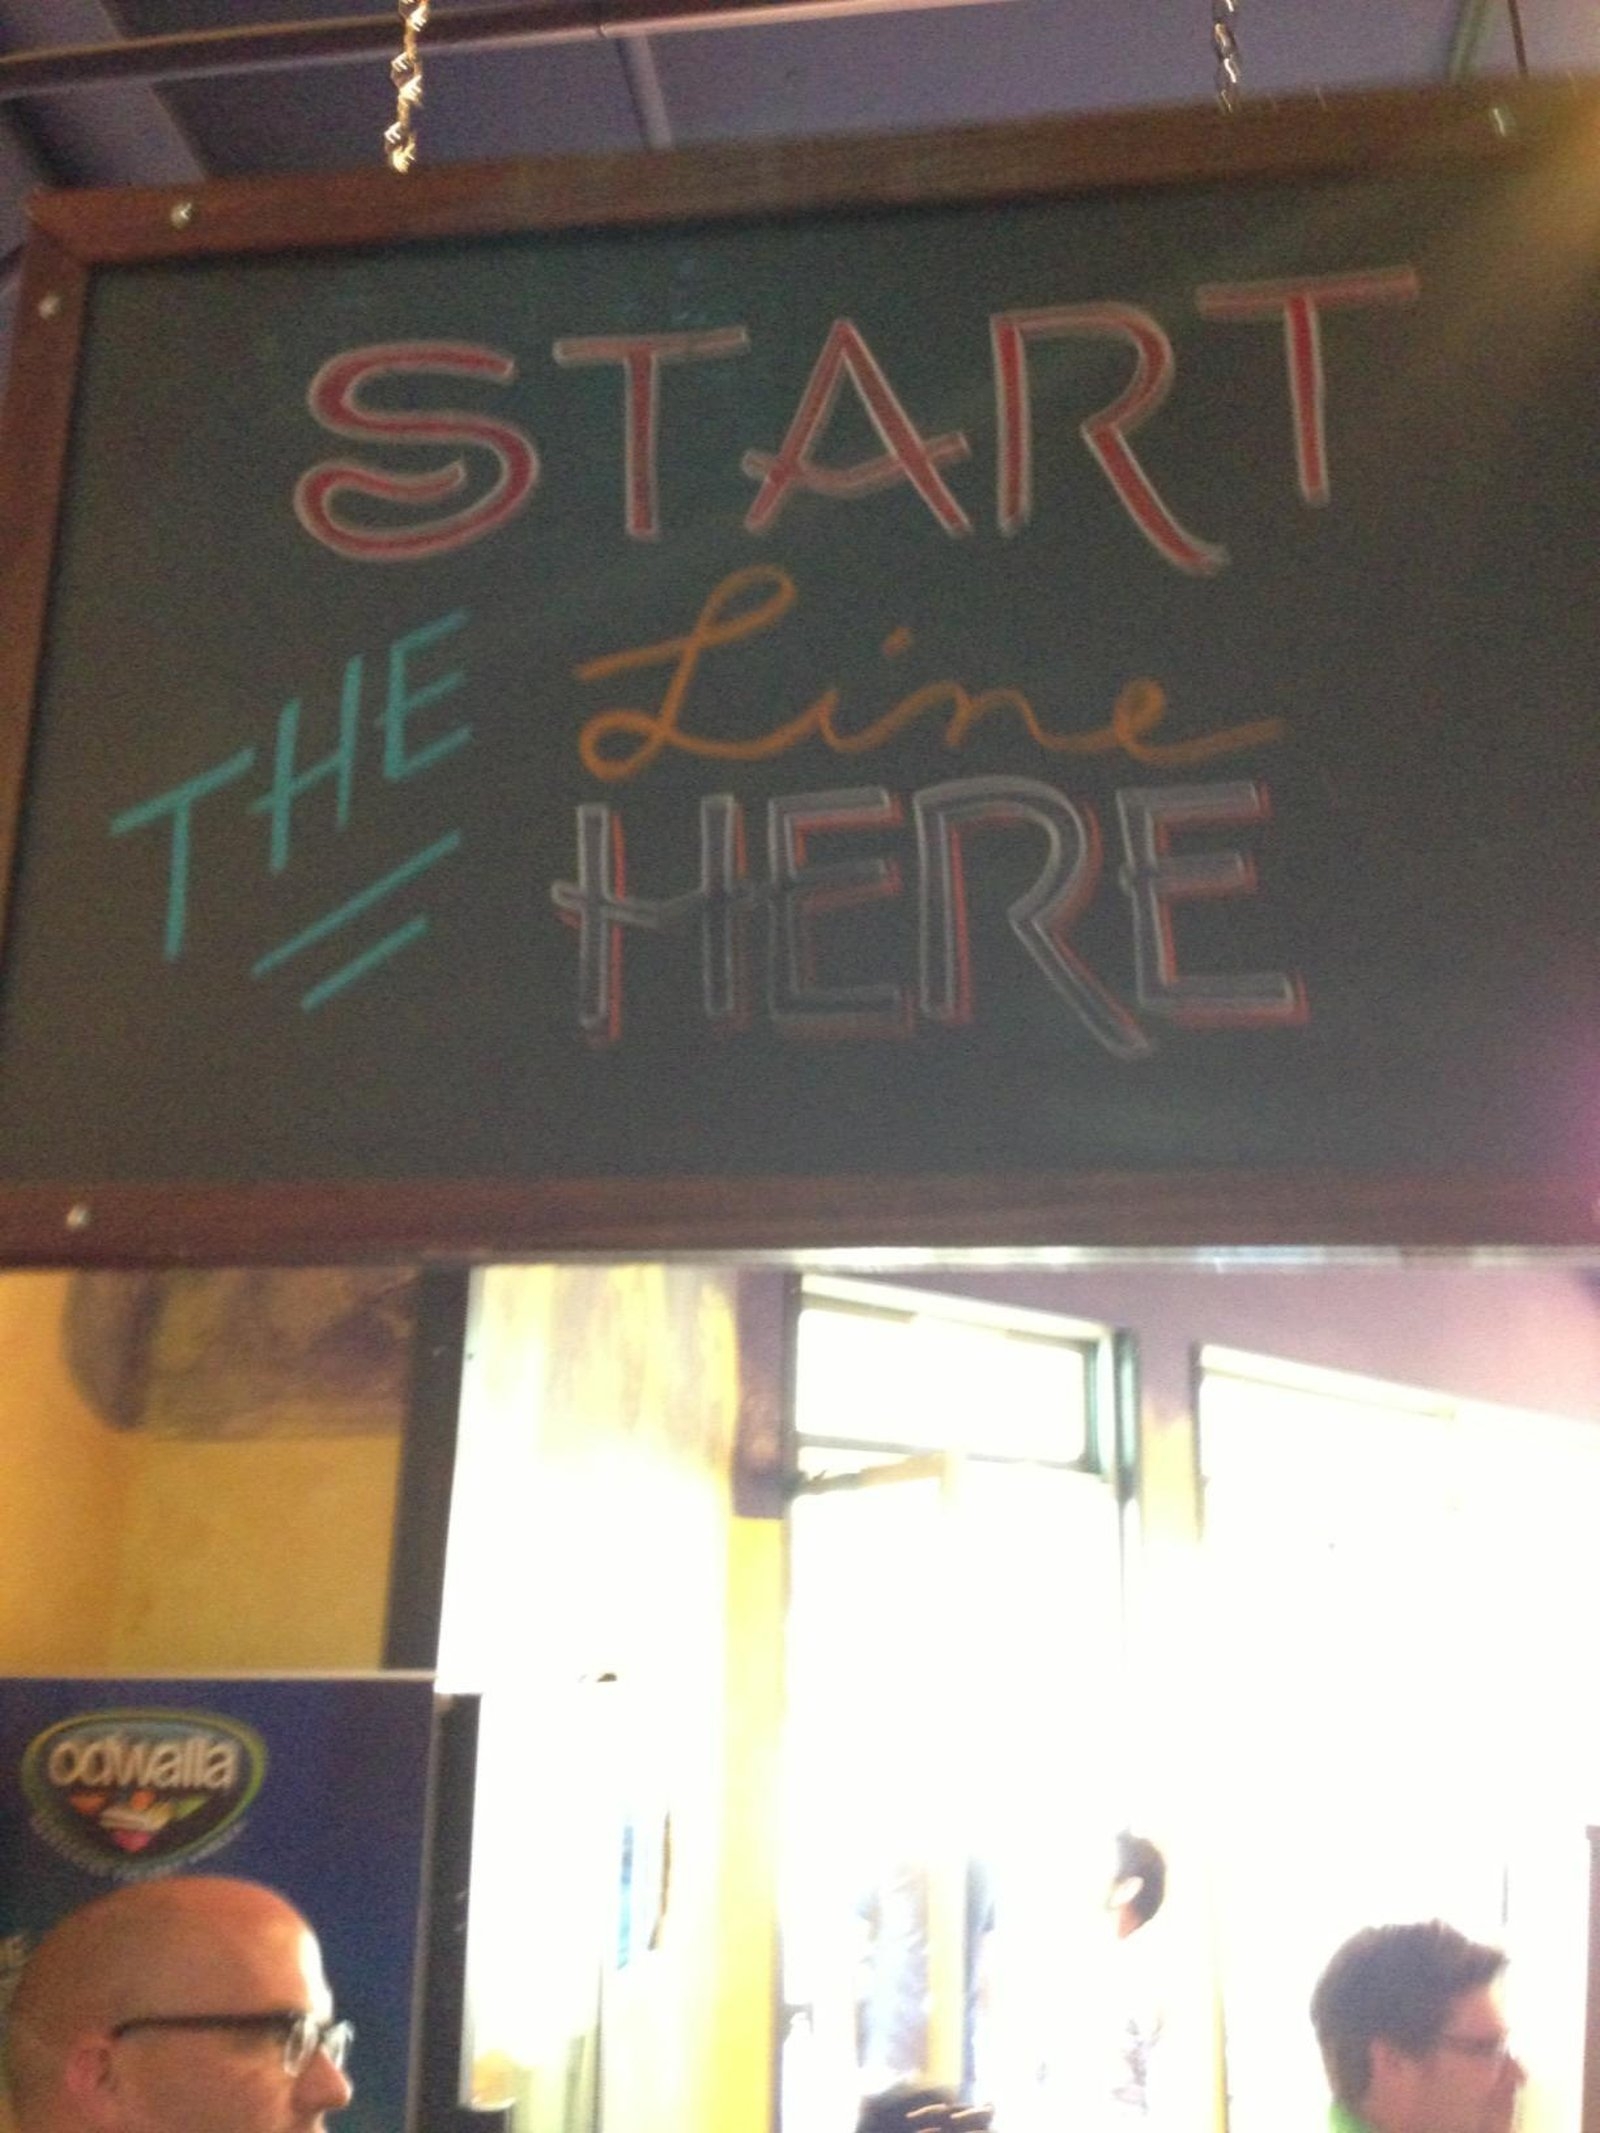 START
THE Line
HERE
odwalla